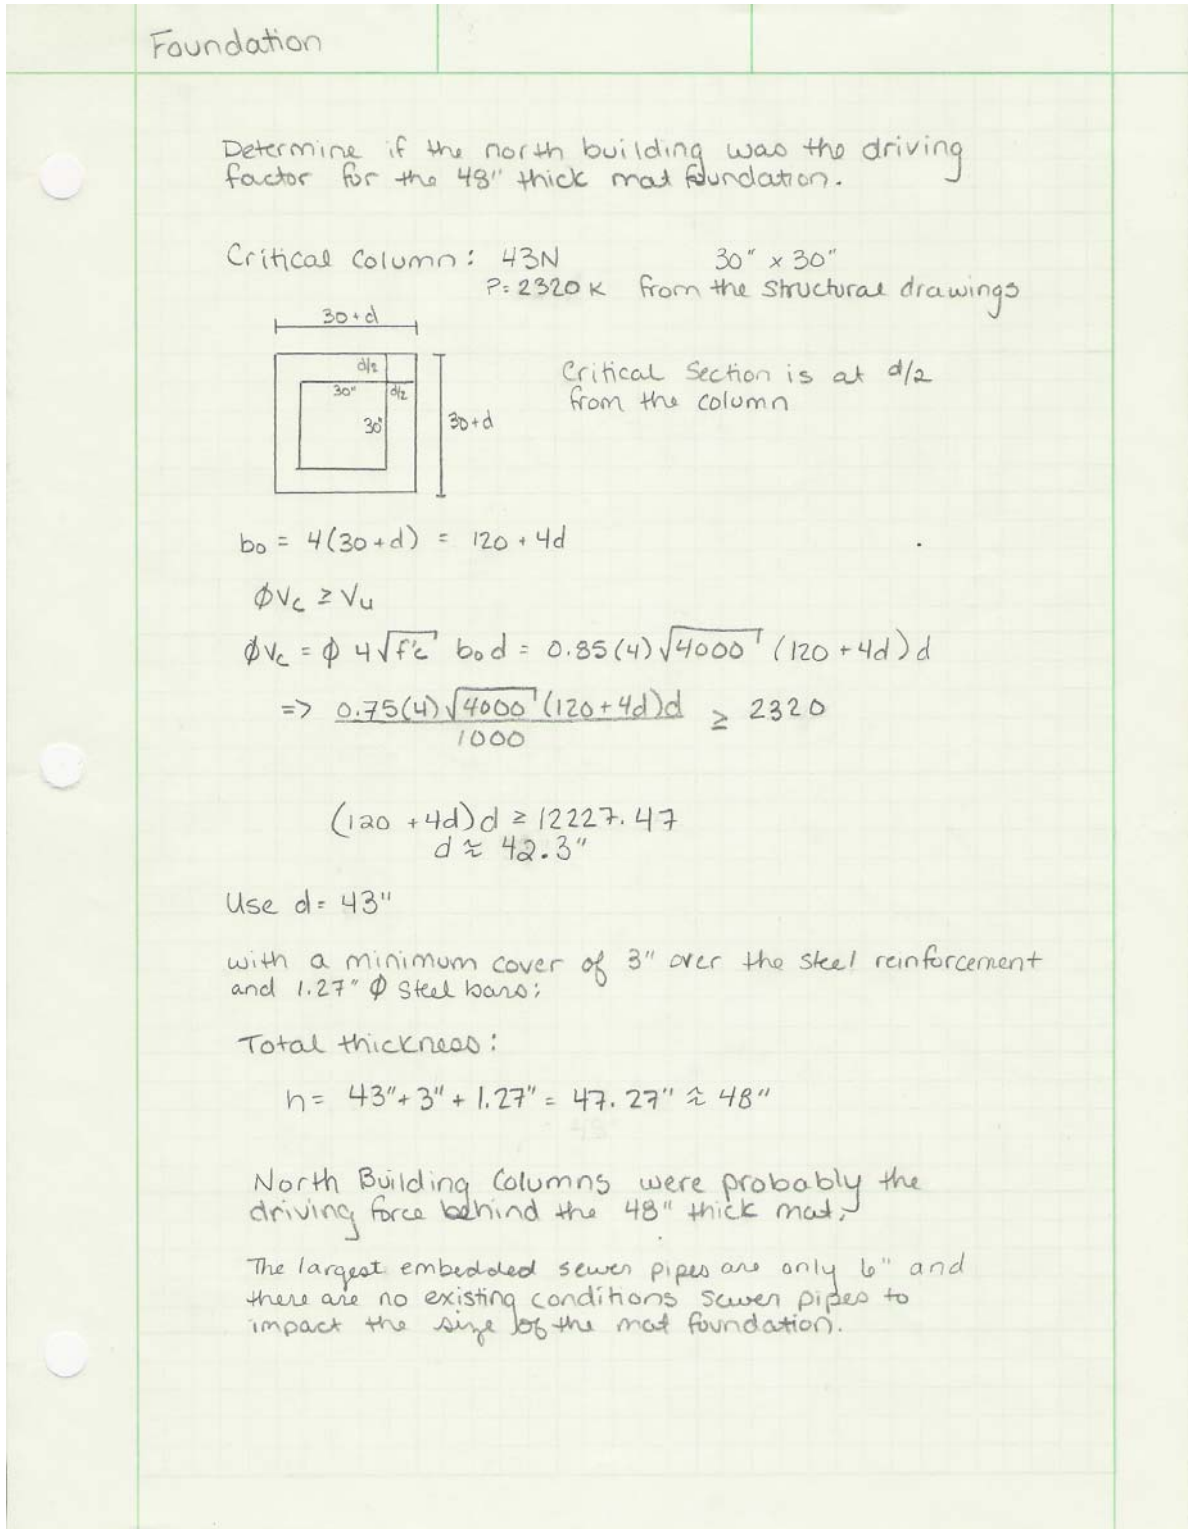 Foundation
Determine if the north building was the driving
factor for the 48" thick mat foundation.
Critical Column: 43N 30" x 30"
P= 2320 K from the structural drawings
30+d
d/2
30" d/2
30" 30+d
Critical Section is at d/2
from the column
bo = 4(30+d) = 120 + 4d
ϕVc ≥ Vu
ϕVc = ϕ 4√f'c bo d = 0.85(4)√4000 (120 + 4d)d
=> 0.75(4)√4000 (120+4d)d ≥ 2320
1000
(120 + 4d)d ≥ 12227.47
d ≈ 42.3"
Use d= 43"
with a minimum cover of 3" over the steel reinforcement
and 1.27" ϕ steel bars:
Total thickness:
h= 43"+3"+1.27" = 47.27" ≈ 48"
North Building Columns were probably the
driving force behind the 48" thick mat.
The largest embedded sewer pipes are only 6" and
there are no existing conditions sewer pipes to
impact the size of the mat foundation.